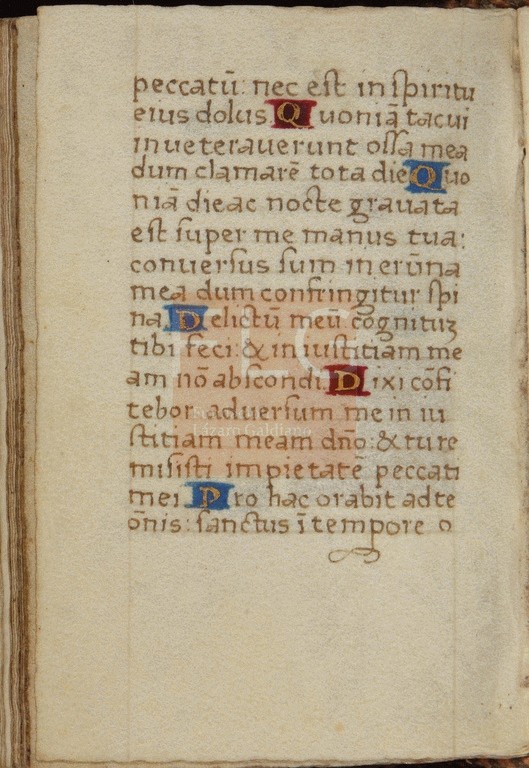 peccatū: nec est in spiritu
eius dolus Quoniā tacui
inueterauerunt ossa mea
dum clamarē tota die Quo
niā die ac nocte grauata
est super me manus tua:
conuersus sum in erūna
mea dum confringitur spi
na. Delictū meū cognituȝ
tibi feci: & in iustitiam me
am nō abscondi. Dixi cōfi
tebor aduersum me in iu
stitiam meam dño: & tu re
misisti impietatē peccati
mei. Pro hac orabit ad te
oñis: sanctus ī tempore o
FLG
Lázaro Galdiano